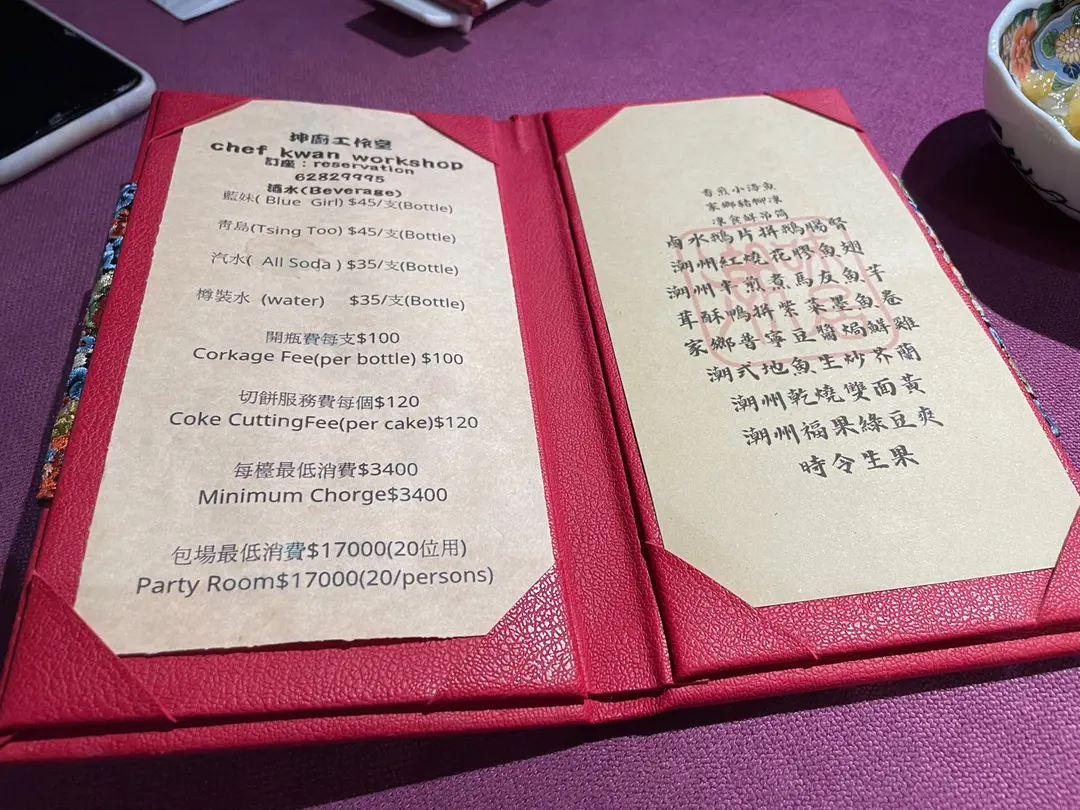 坤廚工作室
chef kwan workshop
訂座：reservation
62829995
酒水(Beverage)
藍妹( Blue Girl) $45/支(Bottle)
青島(Tsing Too) $45/支(Bottle)
汽水( All Soda ) $35/支(Bottle)
樽裝水 (water) $35/支(Bottle)
開瓶費每支$100
Corkage Fee(per bottle) $100
切餅服務費每個$120
Coke CuttingFee(per cake)$120
每檯最低消費$3400
Minimum Chorge$3400
包場最低消費$17000(20位用)
Party Room$17000(20/persons)
香煎小海魚
家鄉豬腳凍
凍食鮮吊筒
鹵水鵝片拼鵝腸腎
潮州紅燒花膠魚翅
潮州半煎煮馬友魚芋
茸酥鴨拼紫菜墨魚卷
家鄉普寧豆醬焗鮮雞
潮式地魚生炒芥蘭
潮州乾燒雙面黃
潮州福果綠豆爽
時令生果